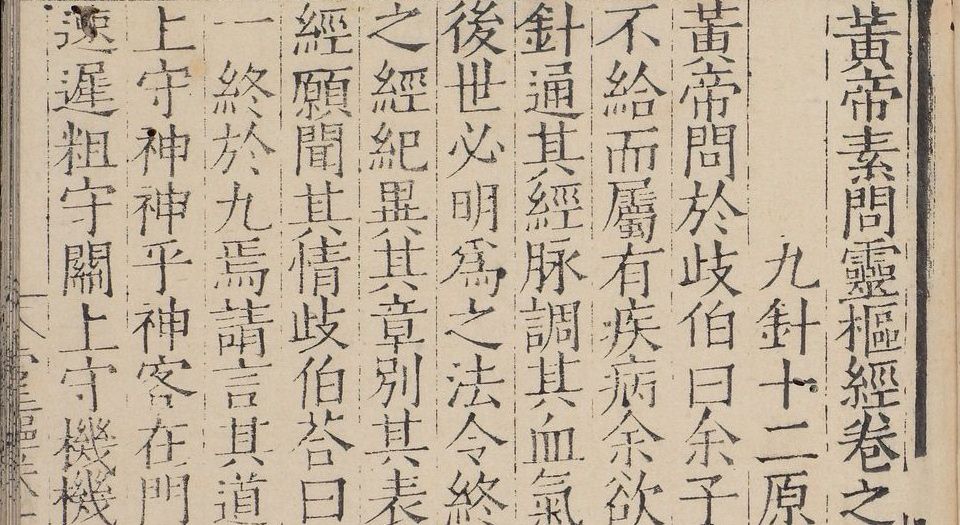 黃帝素問靈樞經卷之
九針十二原
黃帝問於歧伯曰余子
不給而屬有疾病余欲
針通其經脉調其血氣
後世必明爲之法令終
之經紀異其章別其表
經願聞其情歧伯荅曰
一終於九焉請言其道
上守神神乎神客在門
速遲粗守關上守機機